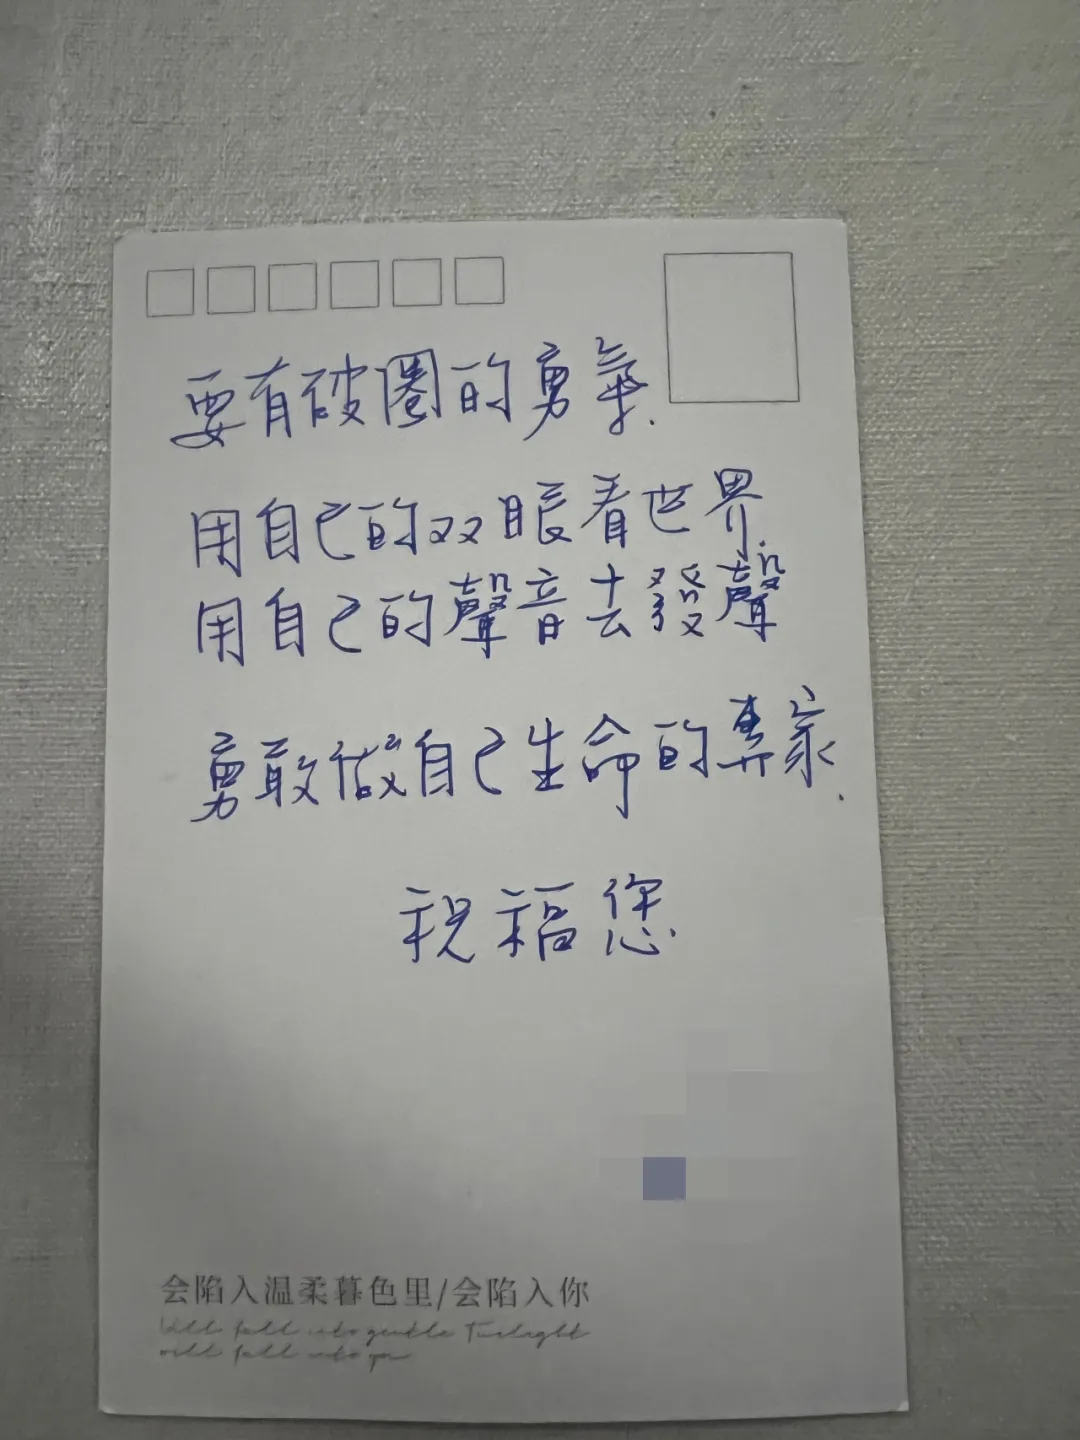 要有破圈的勇氣.
用自己的双眼看世界.
用自己的聲音去發聲
勇敢做自己生命的專家.
祝福您.
会陷入温柔暮色里/会陷入你
Will fall into gentle Twilight
will fall into you